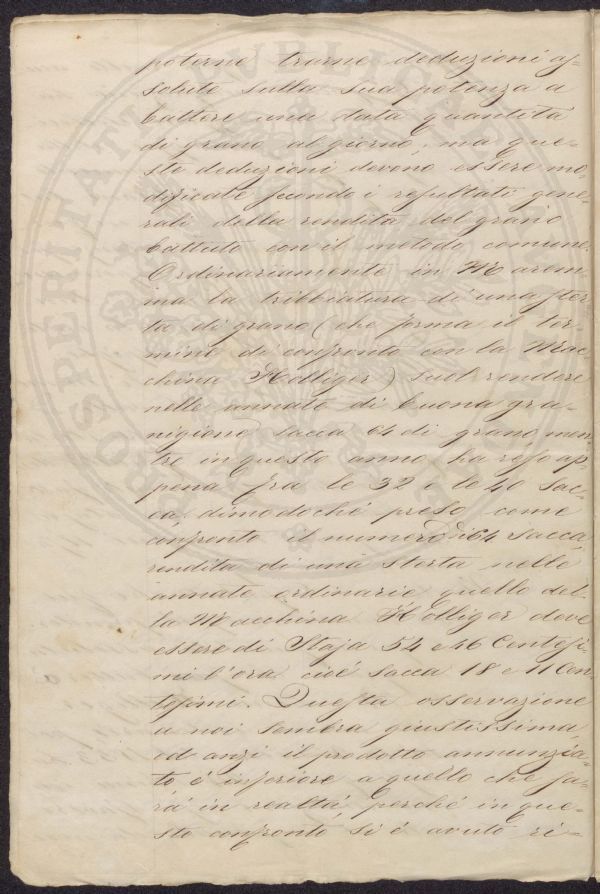 poterne trarne deduzioni as-
solute sulla sua potenza a
battere una data quantità
di grano al giorno, ma que-
ste deduzioni devono essere mo-
dificate secondo i resultati gene-
rali della rendita del grano
battuto con il metodo comune.
Ordinariamente in Marem-
ma la tribbiatura di una ster-
ta di grano (che forma il ter-
mine di confronto con la Mac-
china Holliger) suol rendere
nelle annate di buona gra-
nigione sacca 64 di grano men-
tre in questo anno ha reso ap-
pena fra le 32 e le 40 sac-
ca, dimodoché preso come
confronto il numero di 64 sacca
rendita di una sterta nelle
annate ordinarie quello del-
la Macchina Holliger deve
essere di Staja 54 e 46 Centesi-
mi l'ora cioè sacca 18 e 11 Cen-
tesimi. Questa osservazione
a noi sembra giustissima,
ed anzi il prodotto annunzia-
to è inferiore a quello che sa-
rà in realtà, perché in que-
sto confronto si è avuto ri-
PROSPERITATI PVBLICAE AVGENDAE